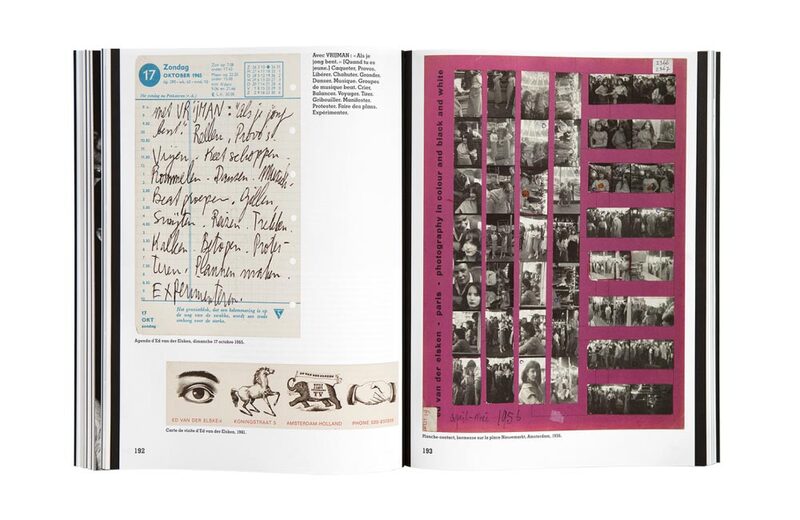 17
Zondag
OKTOBER 1965
met VRIJMAN. "Als je jong
bent." Rellen, Provo's
Vrijen. Keet schoppen.
Rommelen. Dansen. Muziek.
Beat groepen. Gillen.
Reizen. Trekken.
Kalken. Betogen. Protes-
teren. Plannen maken.
EXPERIMENTEREN.
17
OKT
zondag
Agenda d'Ed van der Elsken, dimanche 17 octobre 1965.
Avec VRIJMAN : « Als je
jong bent. » (Quand tu es
jeune.) Caqueter, Provos.
Libérer. Chahuter. Gronder.
Danser. Musique. Groupes
de musique beat. Crier.
Balances. Voyager. Tirer.
Gribouiller. Manifester.
Protester. Faire des plans.
Experimenter.
TV
ED VAN DER ELSKEN KONINGSTRAAT 5 AMSTERDAM HOLLAND PHONE 020-
Carte de visite d'Ed van der Elsken, 1961.
192
2366
2367
ed van der elsken - paris - photography in colour and black and white
april-mei 1956
Planche-contact, kermesse sur la place Nieuwmarkt, Amsterdam, 1956.
193